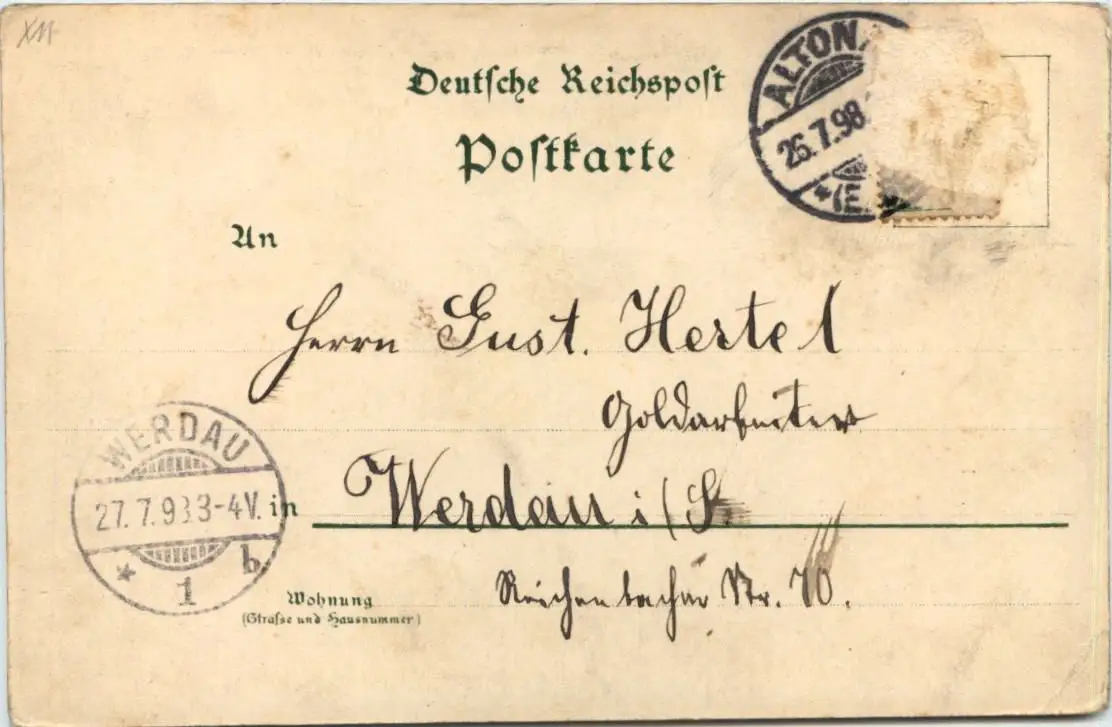 XII
Deutsche Reichspost
Postkarte
ALTONA
26.7.98
* (E.
An
Herrn Gust. Hertel
Goldarbeiter
WERDAU
27. 7. 98 3-4V.
* 1 b.
in Werdau i/S.
Reichenbacher Str. 70.
Wohnung
(Straße und Hausnummer)